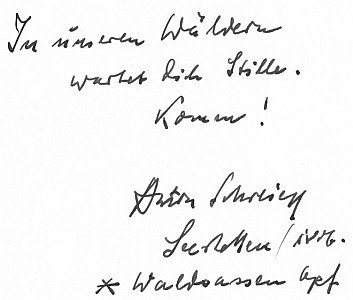 In unseren Wäldern
wartet dich Stille.
Komm!
Anton Schreiegg
/
* Waldsassen Opf